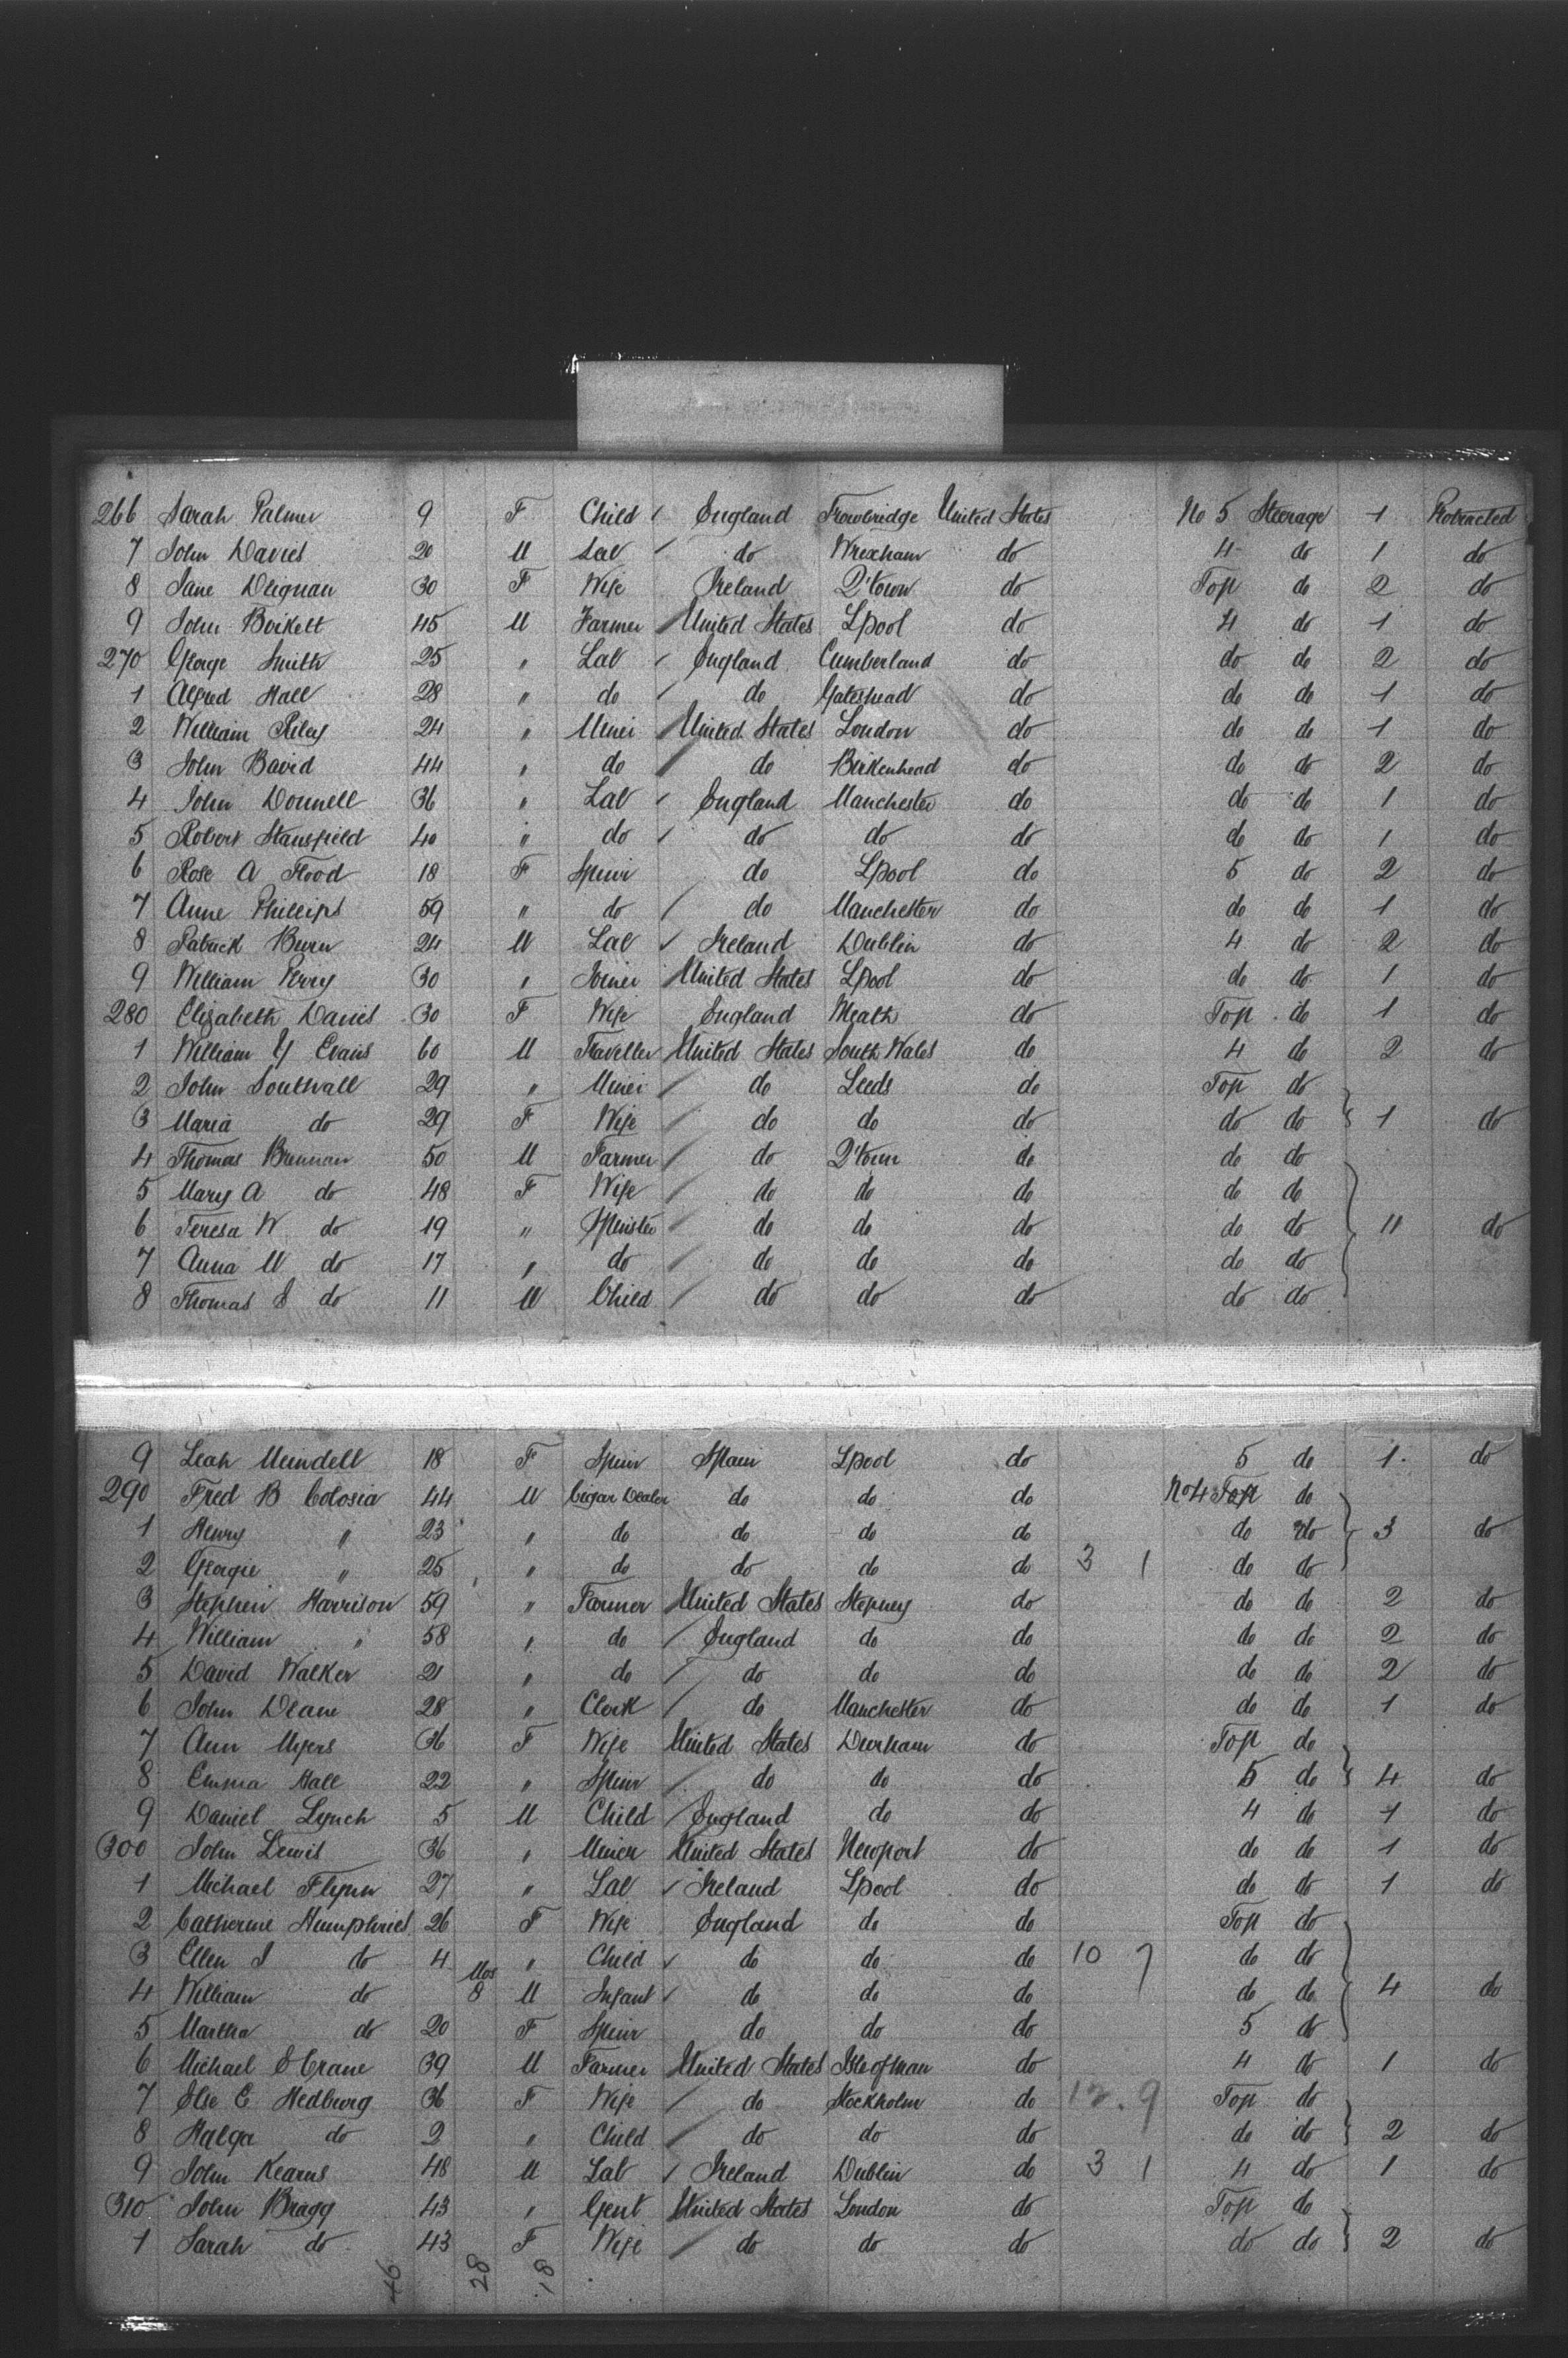 266 Sarah Palmer 9 F Child England Trowbridge United States No 5 Steerage 1 Protracted
7 John Davies 20 M Lab do Wrexham do 4 do 1 do
8 Jane Deignan 30 F Wife Ireland Q'town do Top do 2 do
9 John Birkett 45 M Farmer United States Lpool do 4 do 1 do
270 George Smith 25 " Lab England Cumberland do do do 2 do
1 Alfred Hall 28 " do do Gateshead do do do 1 do
2 William Riley 24 " Miner United States London do do do 1 do
3 John David 44 " do do Birkenhead do do do 2 do
4 John Donnell 36 " Lab England Manchester do do do 1 do
5 Robert Stansfield 40 " do do do do do do 1 do
6 Rose A Flood 18 F Spinr do Lpool do 5 do 2 do
7 Anne Phillips 59 " do do Manchester do do do 1 do
8 Patrick Burn 24 M Lab Ireland Dublin do 4 do 2 do
9 William Perry 30 " Joiner United States Lpool do do do 1 do
280 Elizabeth Davies 30 F Wife England Meath do Top do 1 do
1 William Y Evans 60 M Traveller United States South Wales do 4 do 2 do
2 John Southall 29 " Miner do Leeds do Top do
3 Maria do 29 F Wife do do do do do 1 do
4 Thomas Brennan 50 M Farmer do Q'town do do do
5 Mary A do 48 F Wife do do do do do
6 Teresa W do 19 " Spinster do do do do do 11 do
7 Anna M do 17 " do do do do do do
8 Thomas S do 11 M Child do do do do do
9 Leah Meindell 18 F Spinr Spain Lpool do 5 do 1 do
290 Fred B Colosia 44 M Cigar Dealer do do do No 4 Top do
1 Henry " 23 " do do do do do do 3 do
2 George " 25 " do do do do 3 1 do do
3 Stephen Harrison 59 " Farmer United States Stepney do do do 2 do
4 William " 58 " do England do do do do 2 do
5 David Walker 21 " do do do do do do 2 do
6 John Deane 28 " Clerk do Manchester do do do 1 do
7 Ann Myers 36 F Wife United States Durham do Top do
8 Emma Hall 22 " Spinr do do do 5 do 4 do
9 Daniel Lynch 5 M Child England do do 4 do 1 do
300 John Lewis 36 " Miner United States Newport do do do 1 do
1 Michael Flynn 27 " Lab Ireland Lpool do do do 1 do
2 Catherine Humphries 26 F Wife England do do Top do
3 Ellen J do 4 " Child do do do 10 7 do do
4 William do Mos 8 M Infant do do do do do 4 do
5 Martha do 20 F Spinr do do do 5 do
6 Michael S Crane 39 M Farmer United States Isle of Man do 4 do 1 do
7 Elie E Hedburg 36 F Wife do Stockholm do 12.9 Top do
8 Halga do 2 " Child do do do do do 2 do
9 John Kearns 48 M Lab Ireland Dublin do 3 1 4 do 1 do
310 John Bragg 43 " Gent United States London do Top do
1 Sarah do 43 F Wife do do do do do 2 do
46 28 18